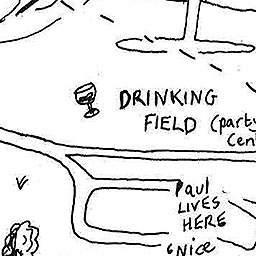 DRINKING
FIELD (party
Cen
Paul
LIVES
HERE
'Nice